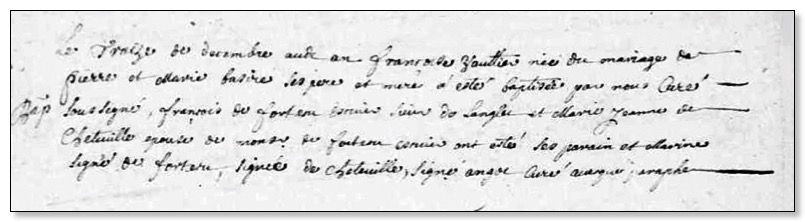 Le Traize de decembre audt an francoise Gaultier née du mariage de
pierre et Marie basire ses pere et mere a esté baptisée par nous Curé
Bap soussigné, francois de forteu escuier sieur de Langle et Marie Jeanne de
Cheteuille epouse de monsr de forteu escuier ont estés ses parain et Marine
signé de forteu, signée de Cheteuille, signé angot Curé auec paraphe